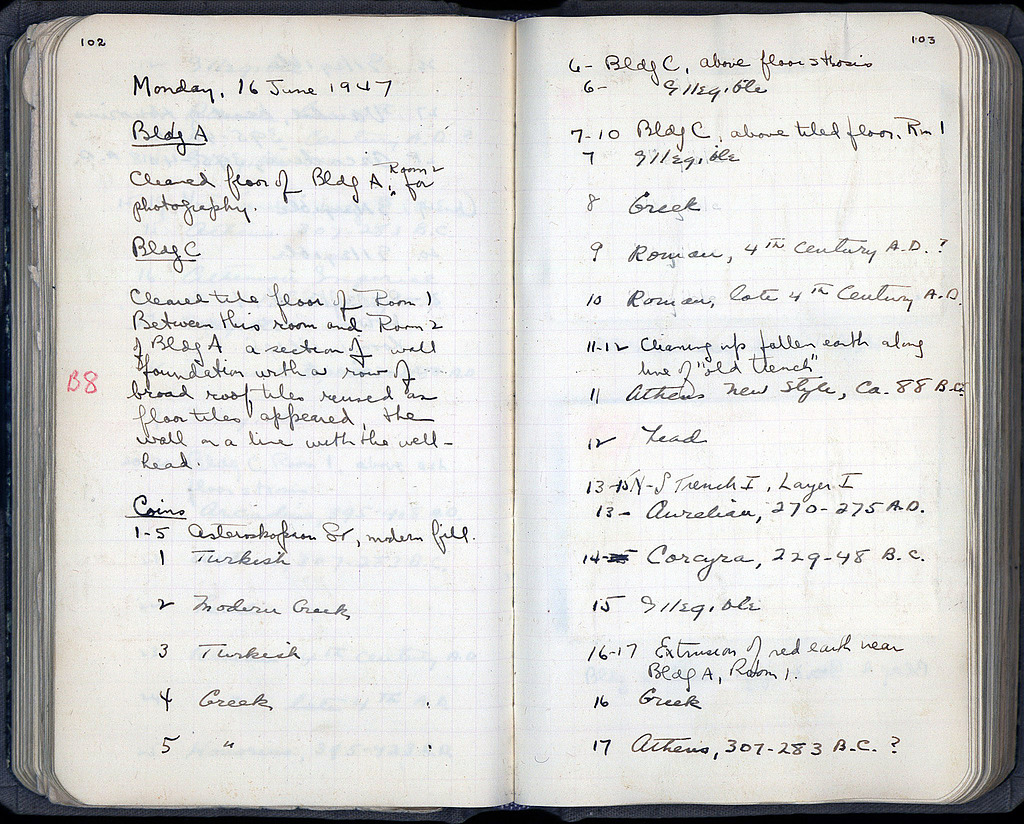 102
Monday, 16 June 1947
Bldg A
Cleared floor of Bldg A, Room 2 for
photography.
Bldg C
Cleared tile floor of Room 1
Between this room and Room 2
of Bldg A a section of wall
foundation with a row of
B8
broad roof tiles reused as
floor tiles appeared, the
wall on a line with the well-
head.
Coins
1-5 Asteroskopeion St, modern fill.
1 Turkish
2 Modern Greek
3 Turkish
4 Greek
5 "
103
6- Bldg C, above floor
6- Illegible
7-10 Bldg C, above tiled floor, Rm 1
7 Illegible
8 Greek
9 Roman, 4TH Century A.D. ?
10 Roman, late 4TH Century A.D.
11-12 Cleaning up fallen earth along
line of "old trench"
11 Athens New Style, Ca. 88 B.C.
12 Lead
13-15 N-S Trench I, Layer I
13- Aurelian, 270-275 A.D.
14- Corcyra, 229-48 B.C.
15 Illegible
16-17 Extrusion of red earth near
Bldg A, Room 1.
16 Greek
17 Athens, 307-283 B.C. ?